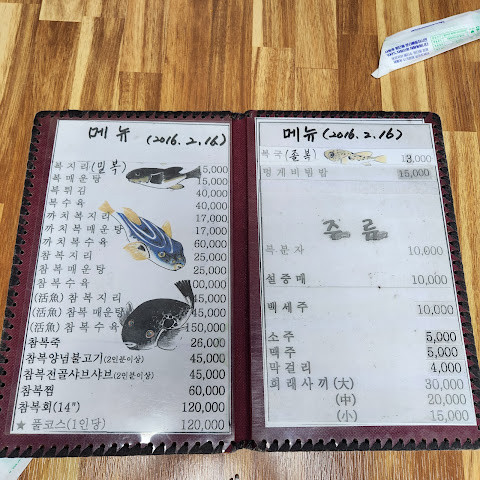 메 뉴 (2016. 2. 16)
복 지 리 (밀 복) 15,000
복 매 운 탕 15,000
복 튀 김 40,000
복 수 육 40,000
까 치 복 지 리 17,000
까 치 복 매 운 탕 17,000
까 치 복 수 육 60,000
참 복 지 리 25,000
참 복 매 운 탕 25,000
참 복 수 육 00,000
(活魚) 참 복 지 리 45,000
(活魚) 참 복 매 운 탕 45,000
(活魚) 참 복 수 육 150,000
참복죽 26,000
참복양념불고기(2인분이상) 45,000
참복전골샤브샤브(2인분이상) 45,000
참복찜 60,000
참복회(14") 120,000
★ 풀코스(1인당) 120,000
메뉴 (2016. 2. 16)
복 국 (졸 복) 13,000
멍게비빔밥 15,000
주 류
복 분 자 10,000
설 중 매 10,000
백 세 주 10,000
소 주 5,000
맥 주 5,000
막 걸 리 4,000
회 래 사 끼 (大) 30,000
(中) 20,000
(小) 15,000